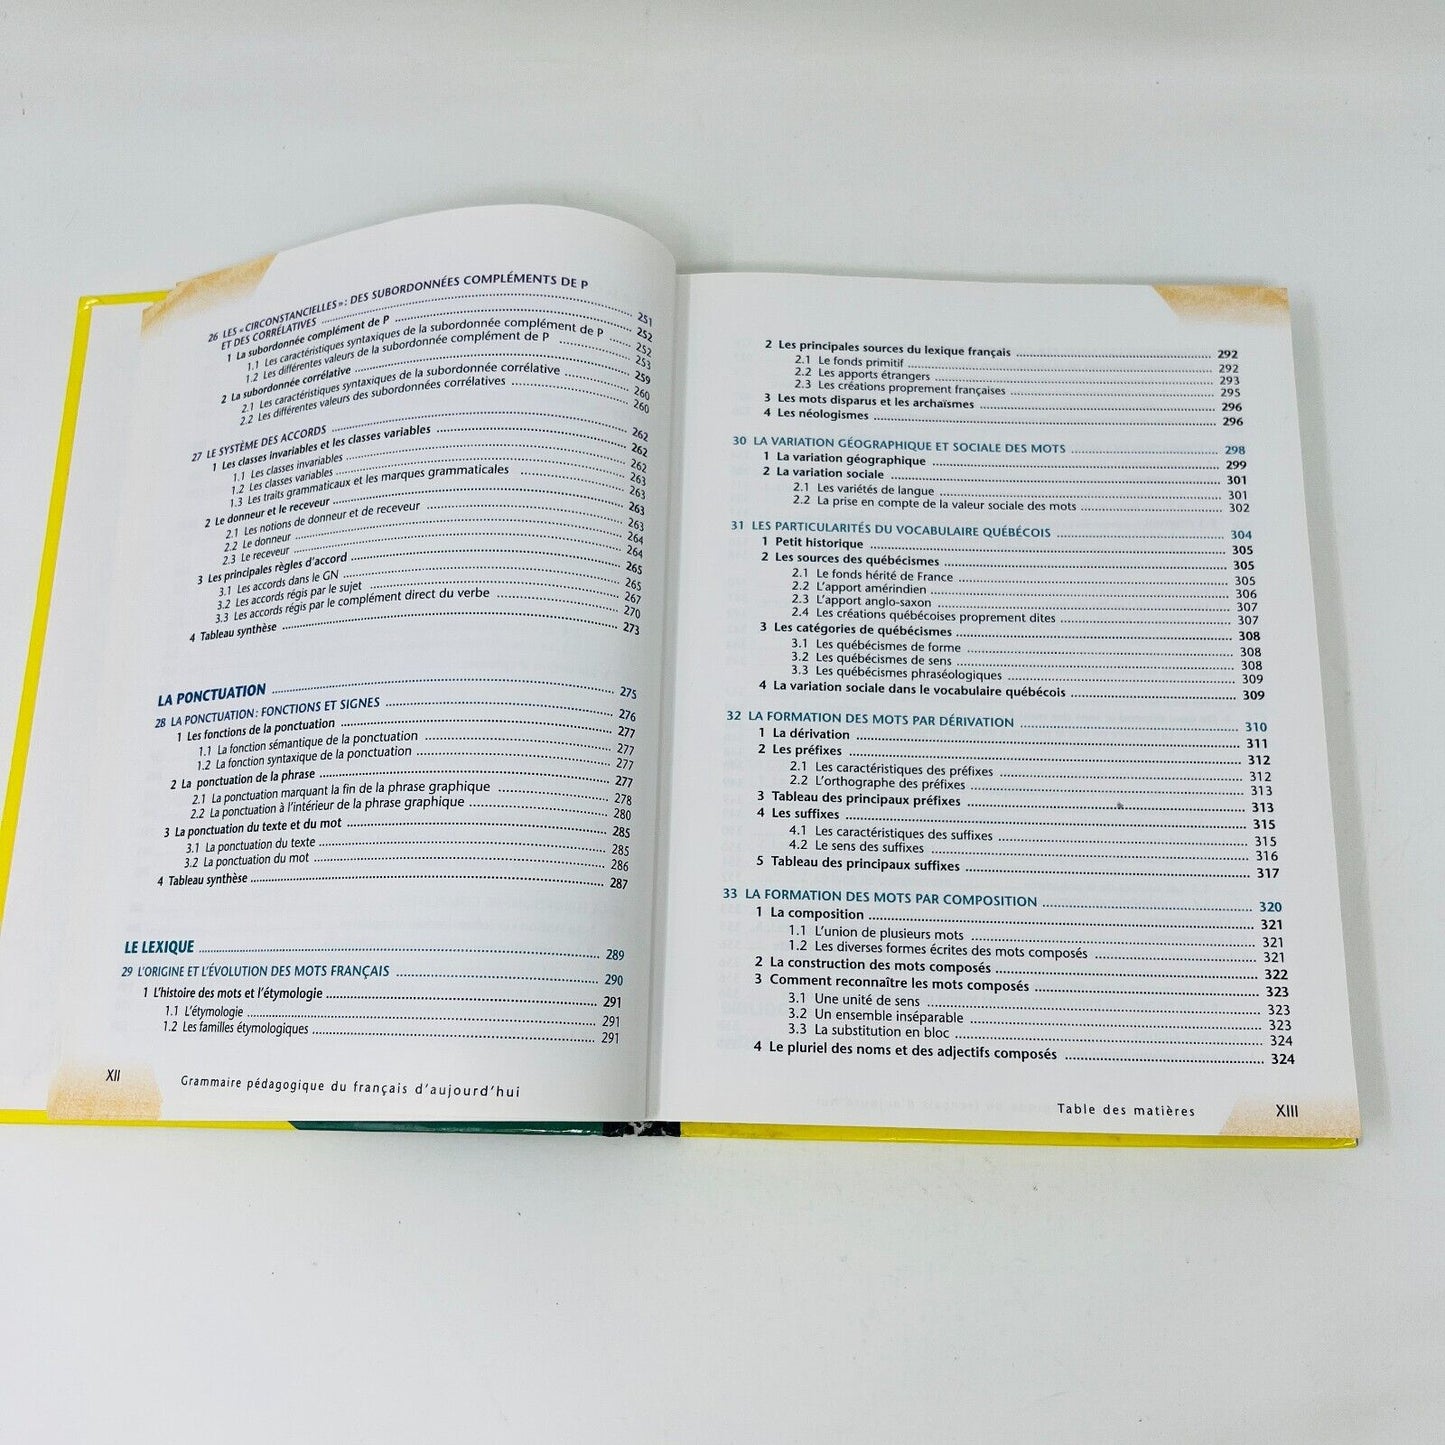 26 LES « CIRCONSTANCIELLES » : DES SUBORDONNÉES COMPLÉMENTS DE P
ET DES CORRÉLATIVES 251
1 La subordonnée complément de P 252
1.1 Les caractéristiques syntaxiques de la subordonnée complément de P 252
1.2 Les différentes valeurs de la subordonnée complément de P 253
2 La subordonnée corrélative 259
2.1 Les caractéristiques syntaxiques de la subordonnée corrélative 260
2.2 Les différentes valeurs des subordonnées corrélatives 260
27 LE SYSTÈME DES ACCORDS 262
1 Les classes invariables et les classes variables 262
1.1 Les classes invariables 262
1.2 Les classes variables 263
1.3 Les traits grammaticaux et les marques grammaticales 263
2 Le donneur et le receveur 263
2.1 Les notions de donneur et de receveur 263
2.2 Le donneur 264
2.3 Le receveur 264
3 Les principales règles d'accord 265
3.1 Les accords dans le GN 265
3.2 Les accords régis par le sujet 267
3.3 Les accords régis par le complément direct du verbe 270
4 Tableau synthèse 273
LA PONCTUATION 275
28 LA PONCTUATION : FONCTIONS ET SIGNES 276
1 Les fonctions de la ponctuation 277
1.1 La fonction sémantique de la ponctuation 277
1.2 La fonction syntaxique de la ponctuation 277
2 La ponctuation de la phrase 277
2.1 La ponctuation marquant la fin de la phrase graphique 278
2.2 La ponctuation à l'intérieur de la phrase graphique 280
3 La ponctuation du texte et du mot 285
3.1 La ponctuation du texte 285
3.2 La ponctuation du mot 286
4 Tableau synthèse 287
LE LEXIQUE 289
29 L'ORIGINE ET L'ÉVOLUTION DES MOTS FRANÇAIS 290
1 L'histoire des mots et l'étymologie 291
1.1 L'étymologie 291
1.2 Les familles étymologiques 291
XII Grammaire pédagogique du français d'aujourd'hui
2 Les principales sources du lexique français 292
2.1 Le fonds primitif 292
2.2 Les apports étrangers 293
2.3 Les créations proprement françaises 295
3 Les mots disparus et les archaïsmes 296
4 Les néologismes 296
30 LA VARIATION GÉOGRAPHIQUE ET SOCIALE DES MOTS 298
1 La variation géographique 299
2 La variation sociale 301
2.1 Les variétés de langue 301
2.2 La prise en compte de la valeur sociale des mots 302
31 LES PARTICULARITÉS DU VOCABULAIRE QUÉBÉCOIS 304
1 Petit historique 305
2 Les sources des québécismes 305
2.1 Le fonds hérité de France 305
2.2 L'apport amérindien 306
2.3 L'apport anglo-saxon 307
2.4 Les créations québécoises proprement dites 307
3 Les catégories de québécismes 308
3.1 Les québécismes de forme 308
3.2 Les québécismes de sens 308
3.3 Les québécismes phraséologiques 309
4 La variation sociale dans le vocabulaire québécois 309
32 LA FORMATION DES MOTS PAR DÉRIVATION 310
1 La dérivation 311
2 Les préfixes 312
2.1 Les caractéristiques des préfixes 312
2.2 L'orthographe des préfixes 313
3 Tableau des principaux préfixes 313
4 Les suffixes 315
4.1 Les caractéristiques des suffixes 315
4.2 Le sens des suffixes 316
5 Tableau des principaux suffixes 317
33 LA FORMATION DES MOTS PAR COMPOSITION 320
1 La composition 321
1.1 L'union de plusieurs mots 321
1.2 Les diverses formes écrites des mots composés 321
2 La construction des mots composés 322
3 Comment reconnaître les mots composés 323
3.1 Une unité de sens 323
3.2 Un ensemble inséparable 323
3.3 La substitution en bloc 324
4 Le pluriel des noms et des adjectifs composés 324
Table des matières XIII